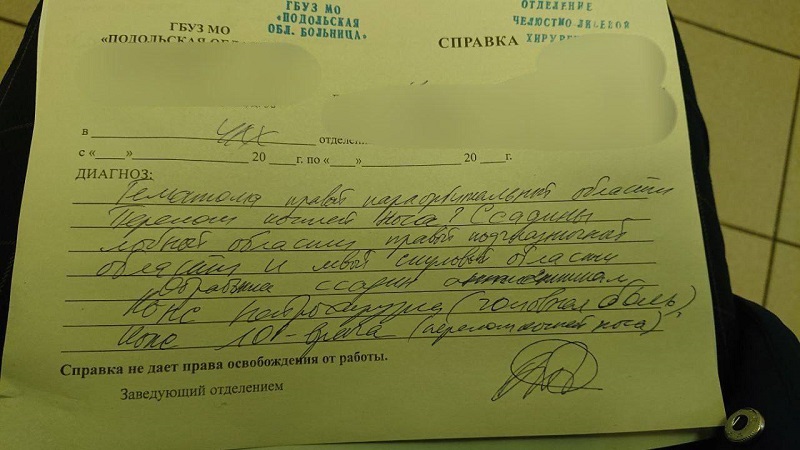 ГБУЗ МО
«ПОДОЛЬСКАЯ
ГБУЗ МО
«ПОДОЛЬСКАЯ
ОБЛ. БОЛЬНИЦА»
СПРАВКА
ОТДЕЛЕНИЕ
ЧЕЛЮСТНО ЛИЦЕВОЙ
в ЧЛХ отделен
с «___» 20 ___ г. по «___» 20 ___ г.
ДИАГНОЗ:
Гематома правой параорбитальной области
Перелом костей носа? Ссадины
лобной области, правой подглазничной
области и левой скуловой области
Обработка ссадин антисептиком
Конс нейрохирурга (головная боль)
Конс ЛОР-врача (перелом костей носа)
Справка не дает права освобождения от работы.
Заведующий отделением